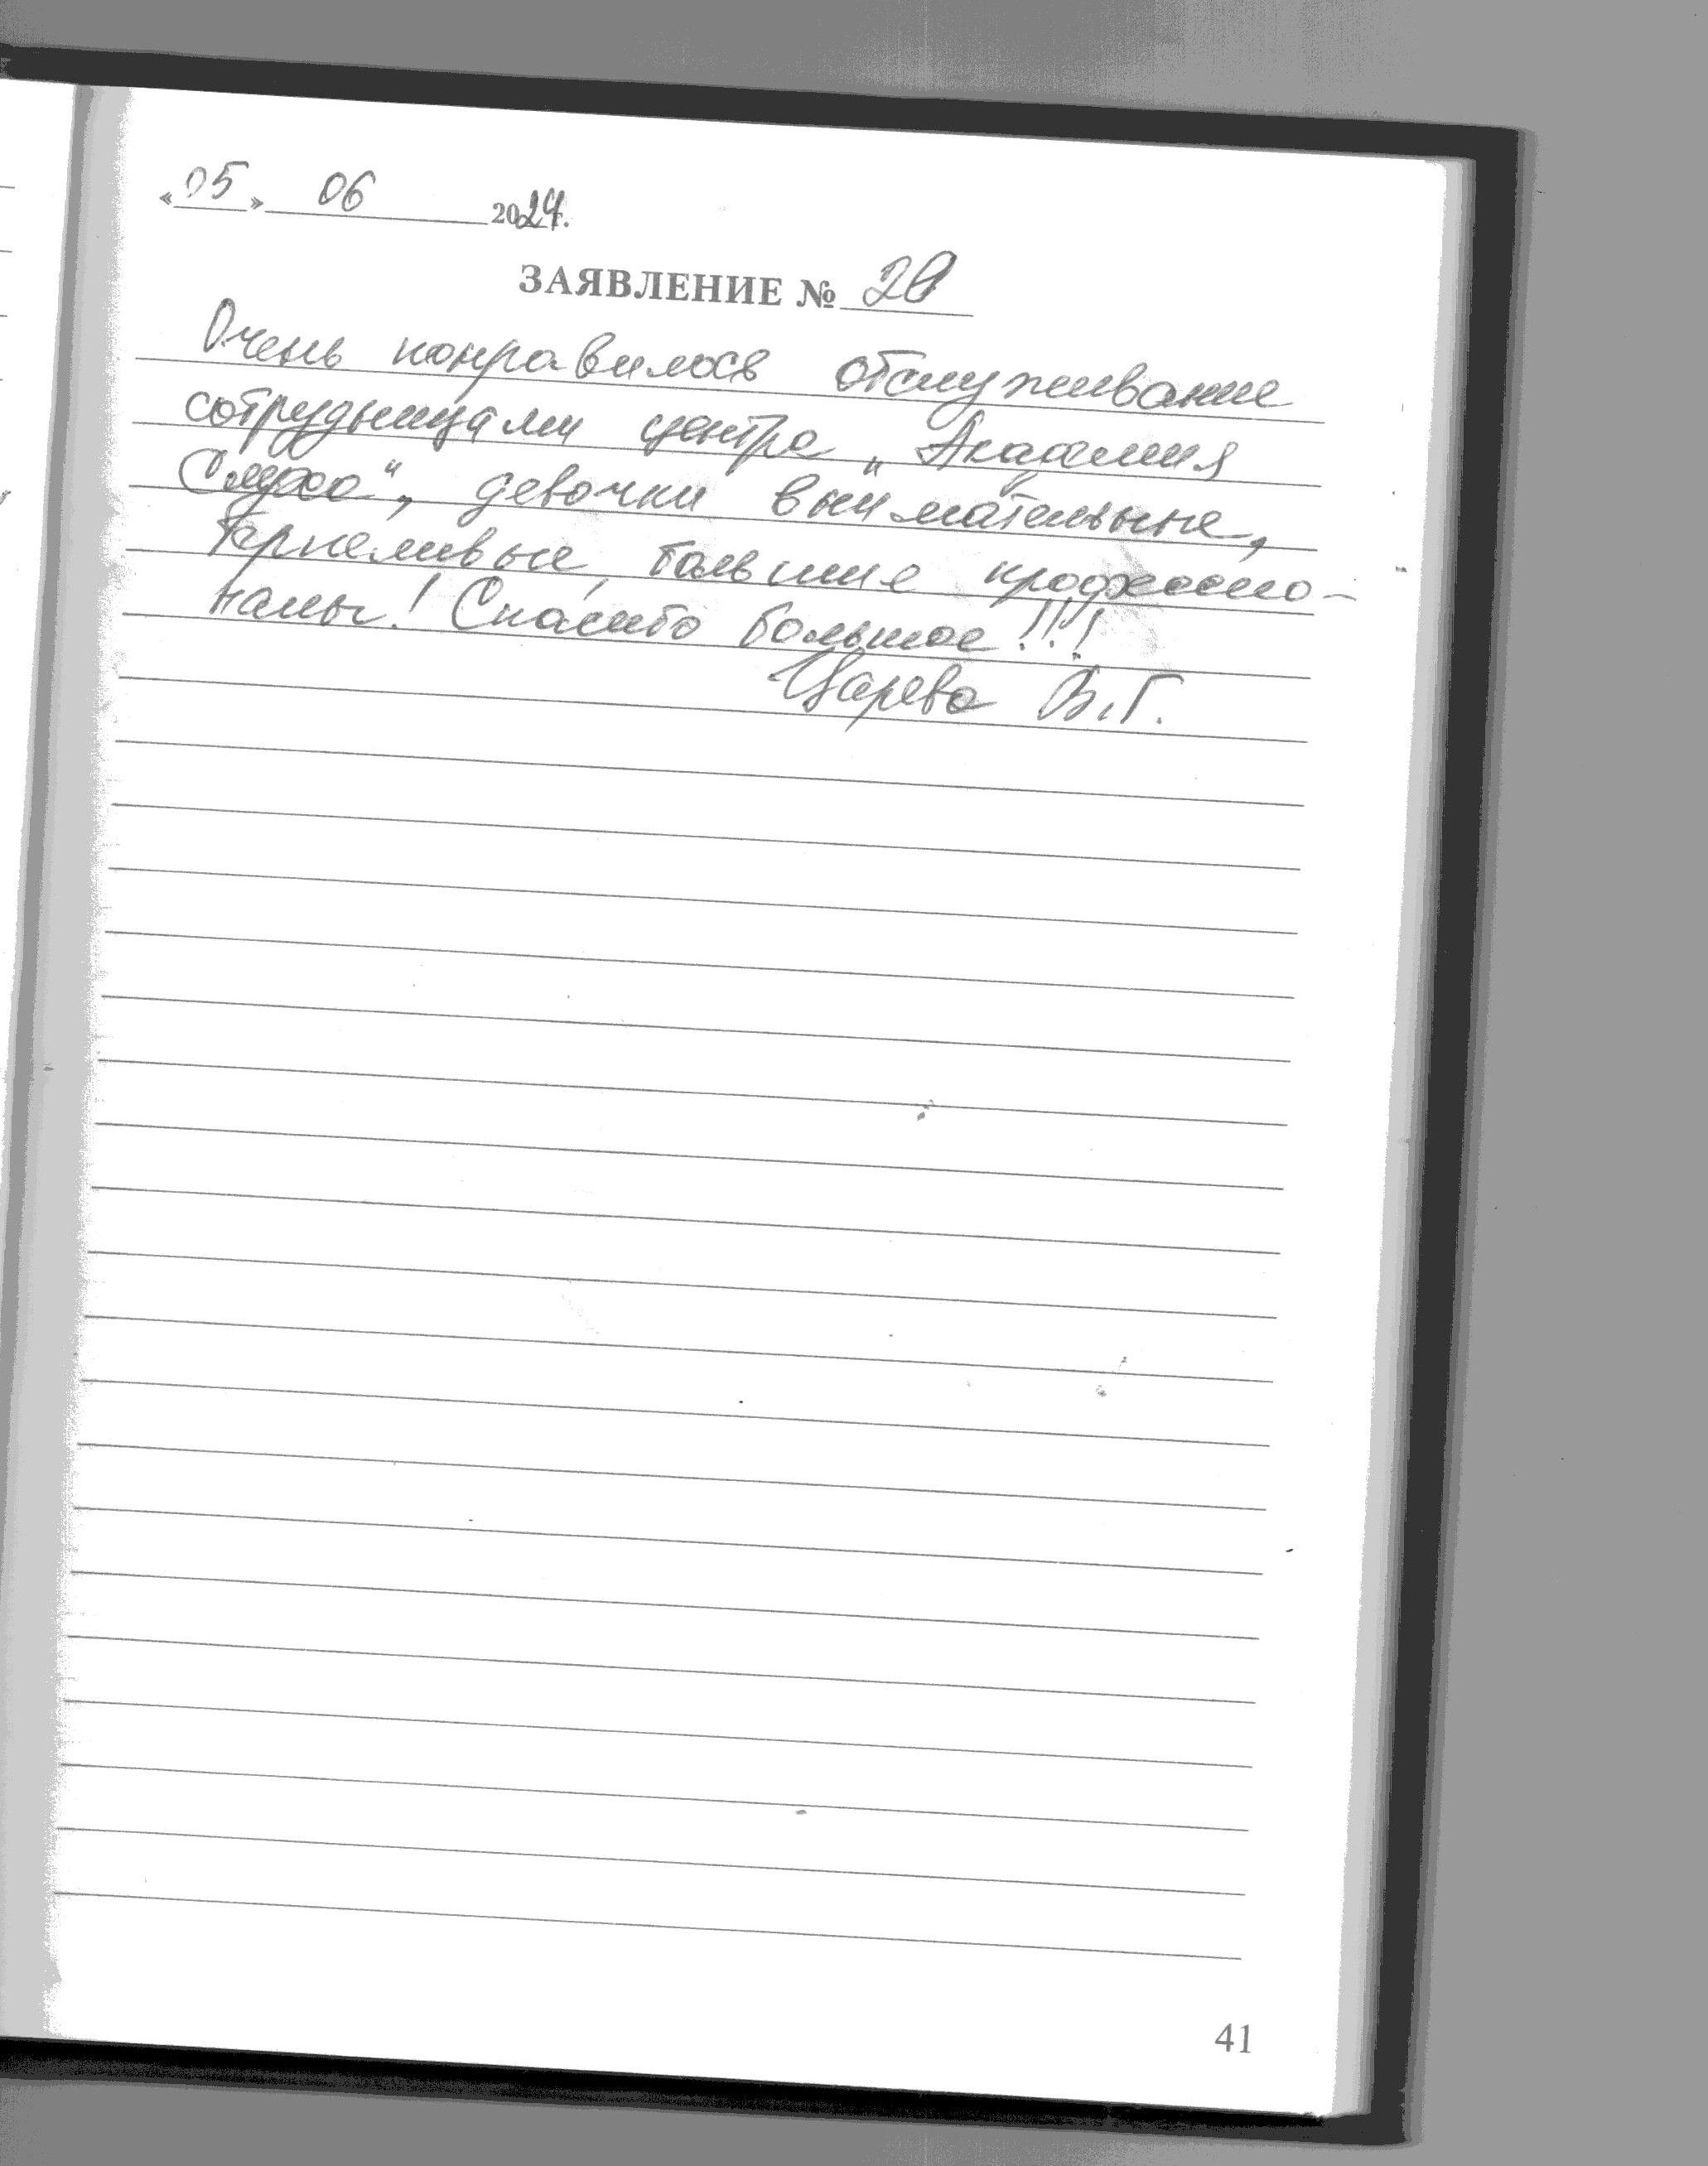 «05» 06 2024г.
ЗАЯВЛЕНИЕ № 20
Очень понравилось обслуживание
сотрудницами центра „Академия
Слуха“, девочки внимательные,
терпеливые, большие профессио-
налы! Спасибо большое!!!
Царева В.Г.
41